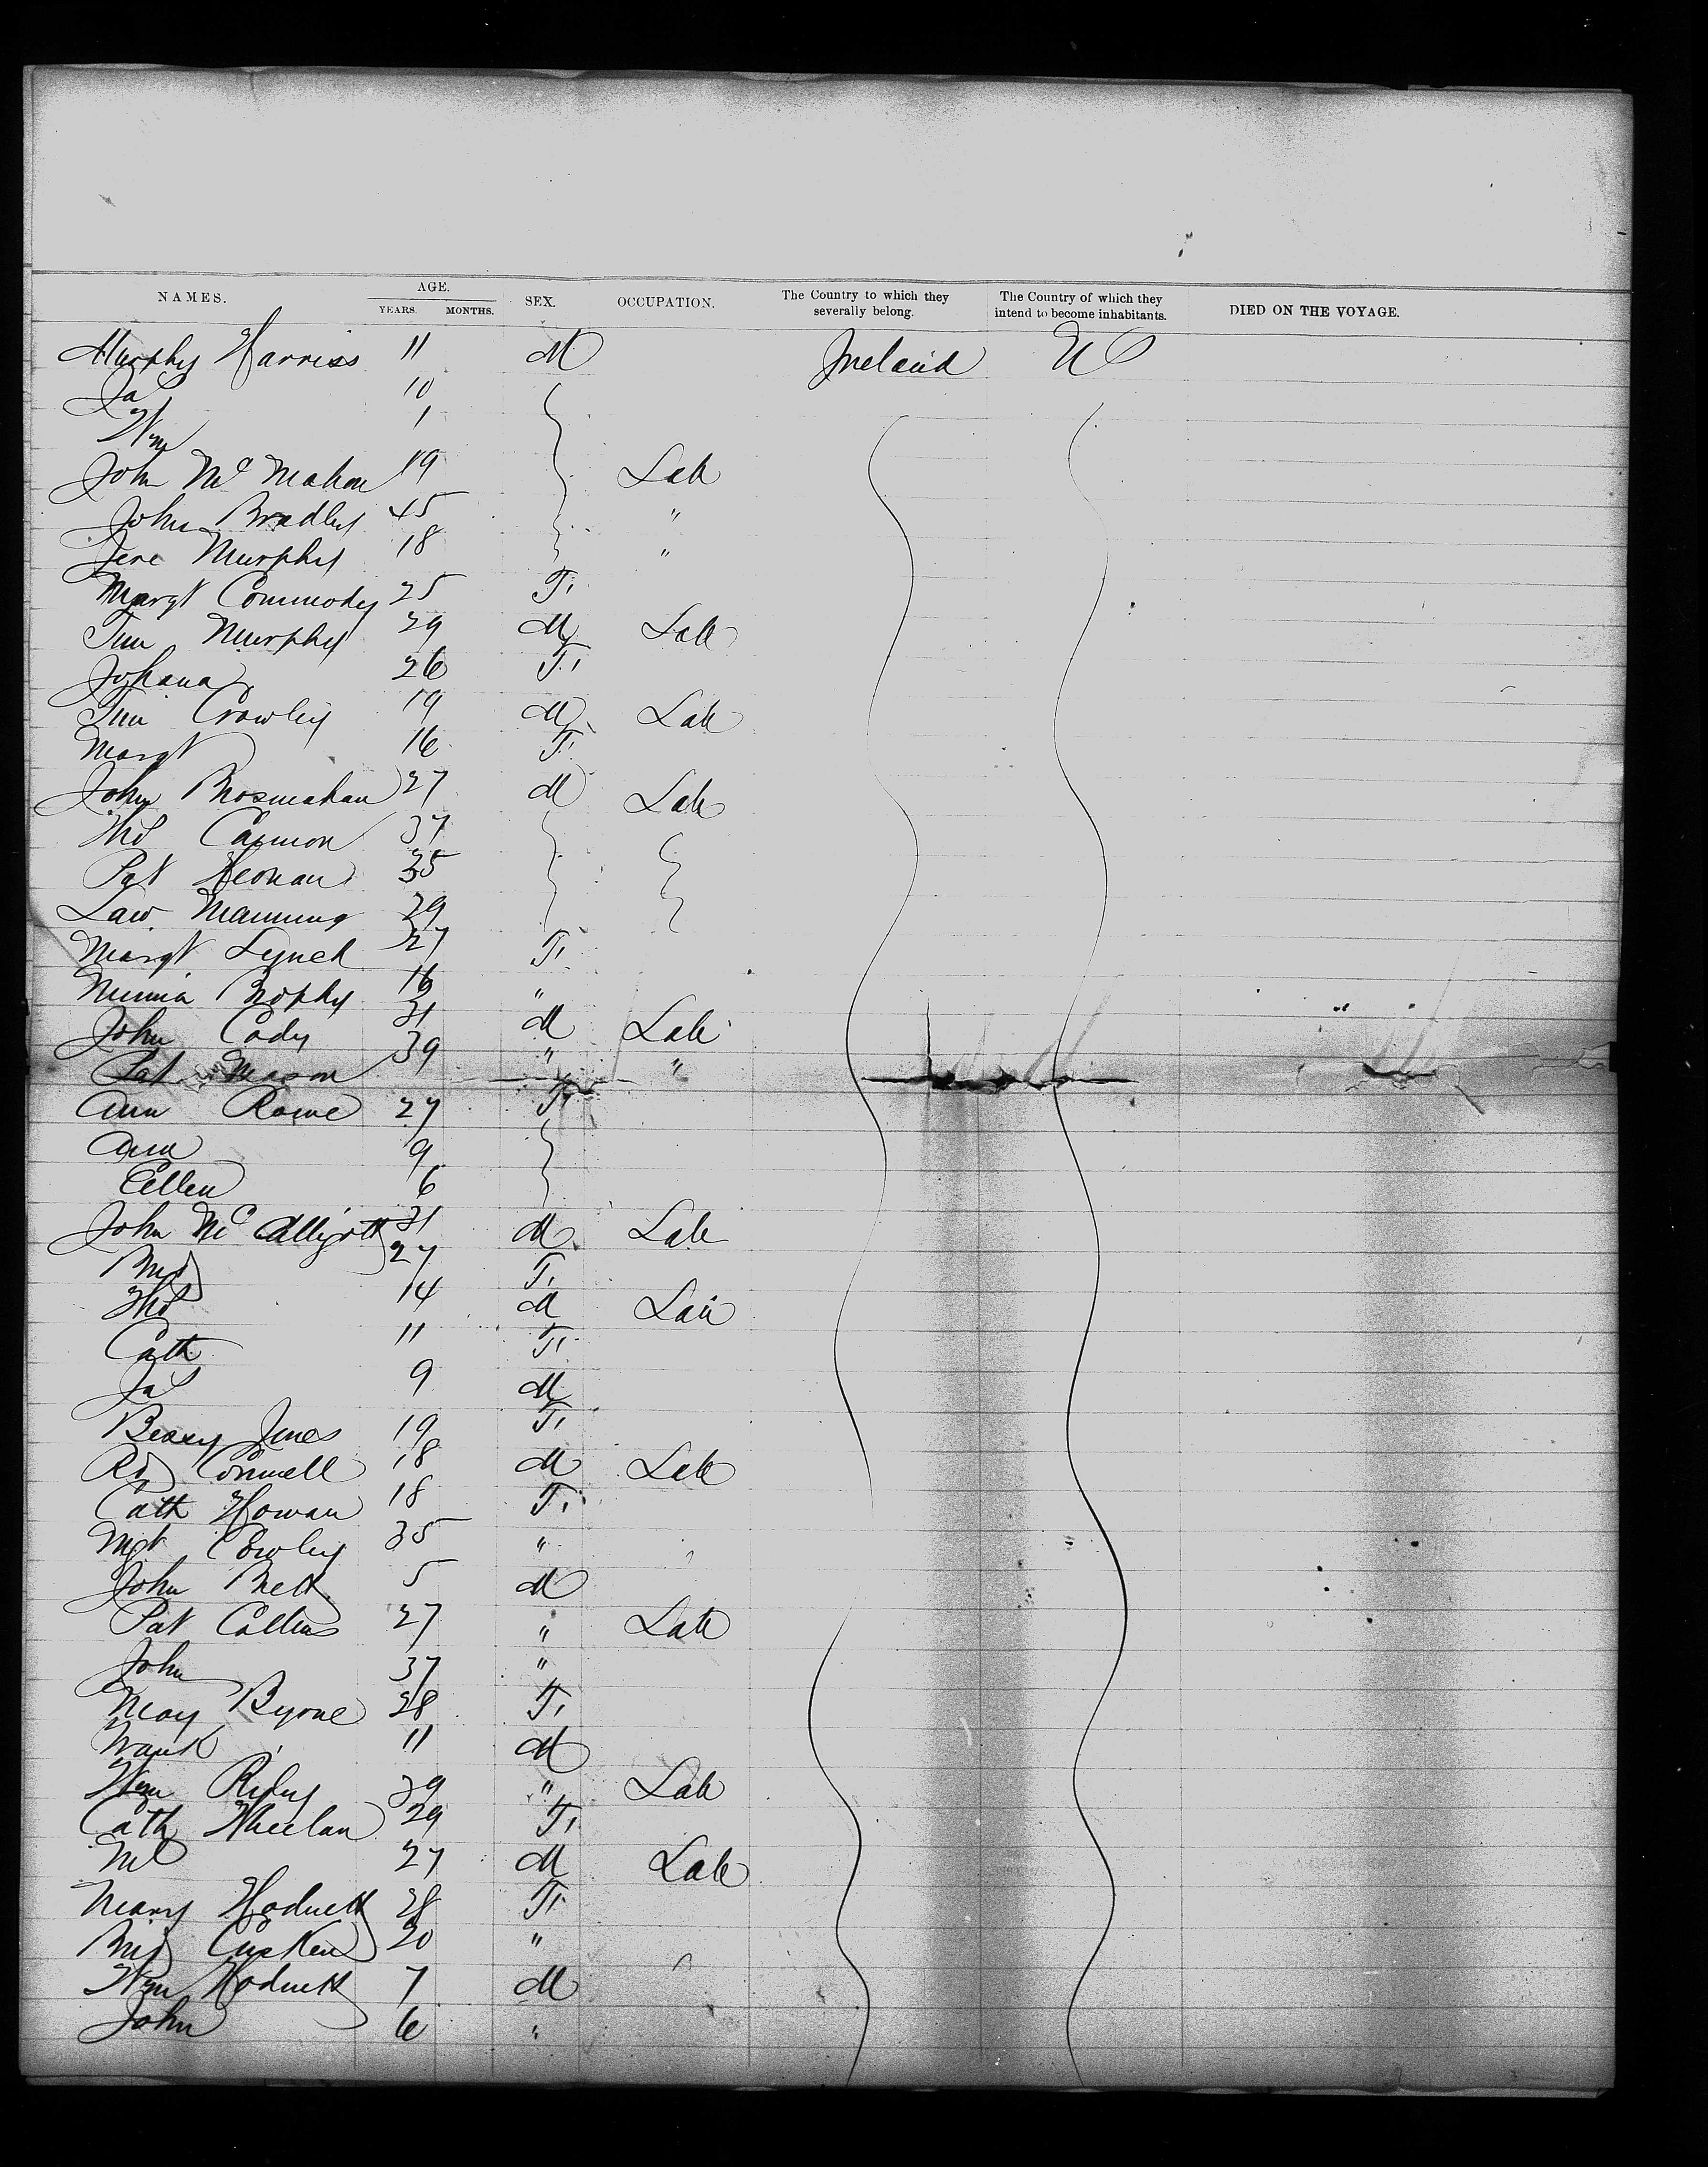 NAMES. AGE. YEARS. MONTHS. SEX. OCCUPATION. The Country to which they severally belong. The Country of which they intend to become inhabitants. DIED ON THE VOYAGE.
Murphy Harriss 11 M Ireland US
Jas 10
Wm 1
John Mc Mahon 19 Lab
John Bradley 45 "
Jere Murphy 18 "
Margt Commody 25 F
Tim Murphy 29 M Lab
Johana 26 F
Tim Crowley 19 M Lab
Margt 16 F
John Brosnahan 27 M Lab
Thos Cannon 37
Pat Heonan 35
Law Manning 29
Margt Lynch 27 F
Brophy 16 "
John Cody 31 M Lab
Pat Mason 39 " "
Ann Rowe 27 F
Ann 9
Ellen 6
John Mc Elligott 31 M Lab
Brid 27 F
Thos 14 M
Cath 11 F
Jas 9 M
Jones 19 F
Connell 18 M Lab
Cath Howan 18 F
Mgt Cowley 35 "
John Brett 5 M
Pat Collins 27 " Lab
John 37 "
May Byrne 28 F
Frank 11 M
Wm 39 " Lab
Cath Wheelan 29 F
Ml 27 M Lab
Mary Hodnett 28 F
Brid Cusken 20 "
Wm Hodnett 7 M
John 6 "